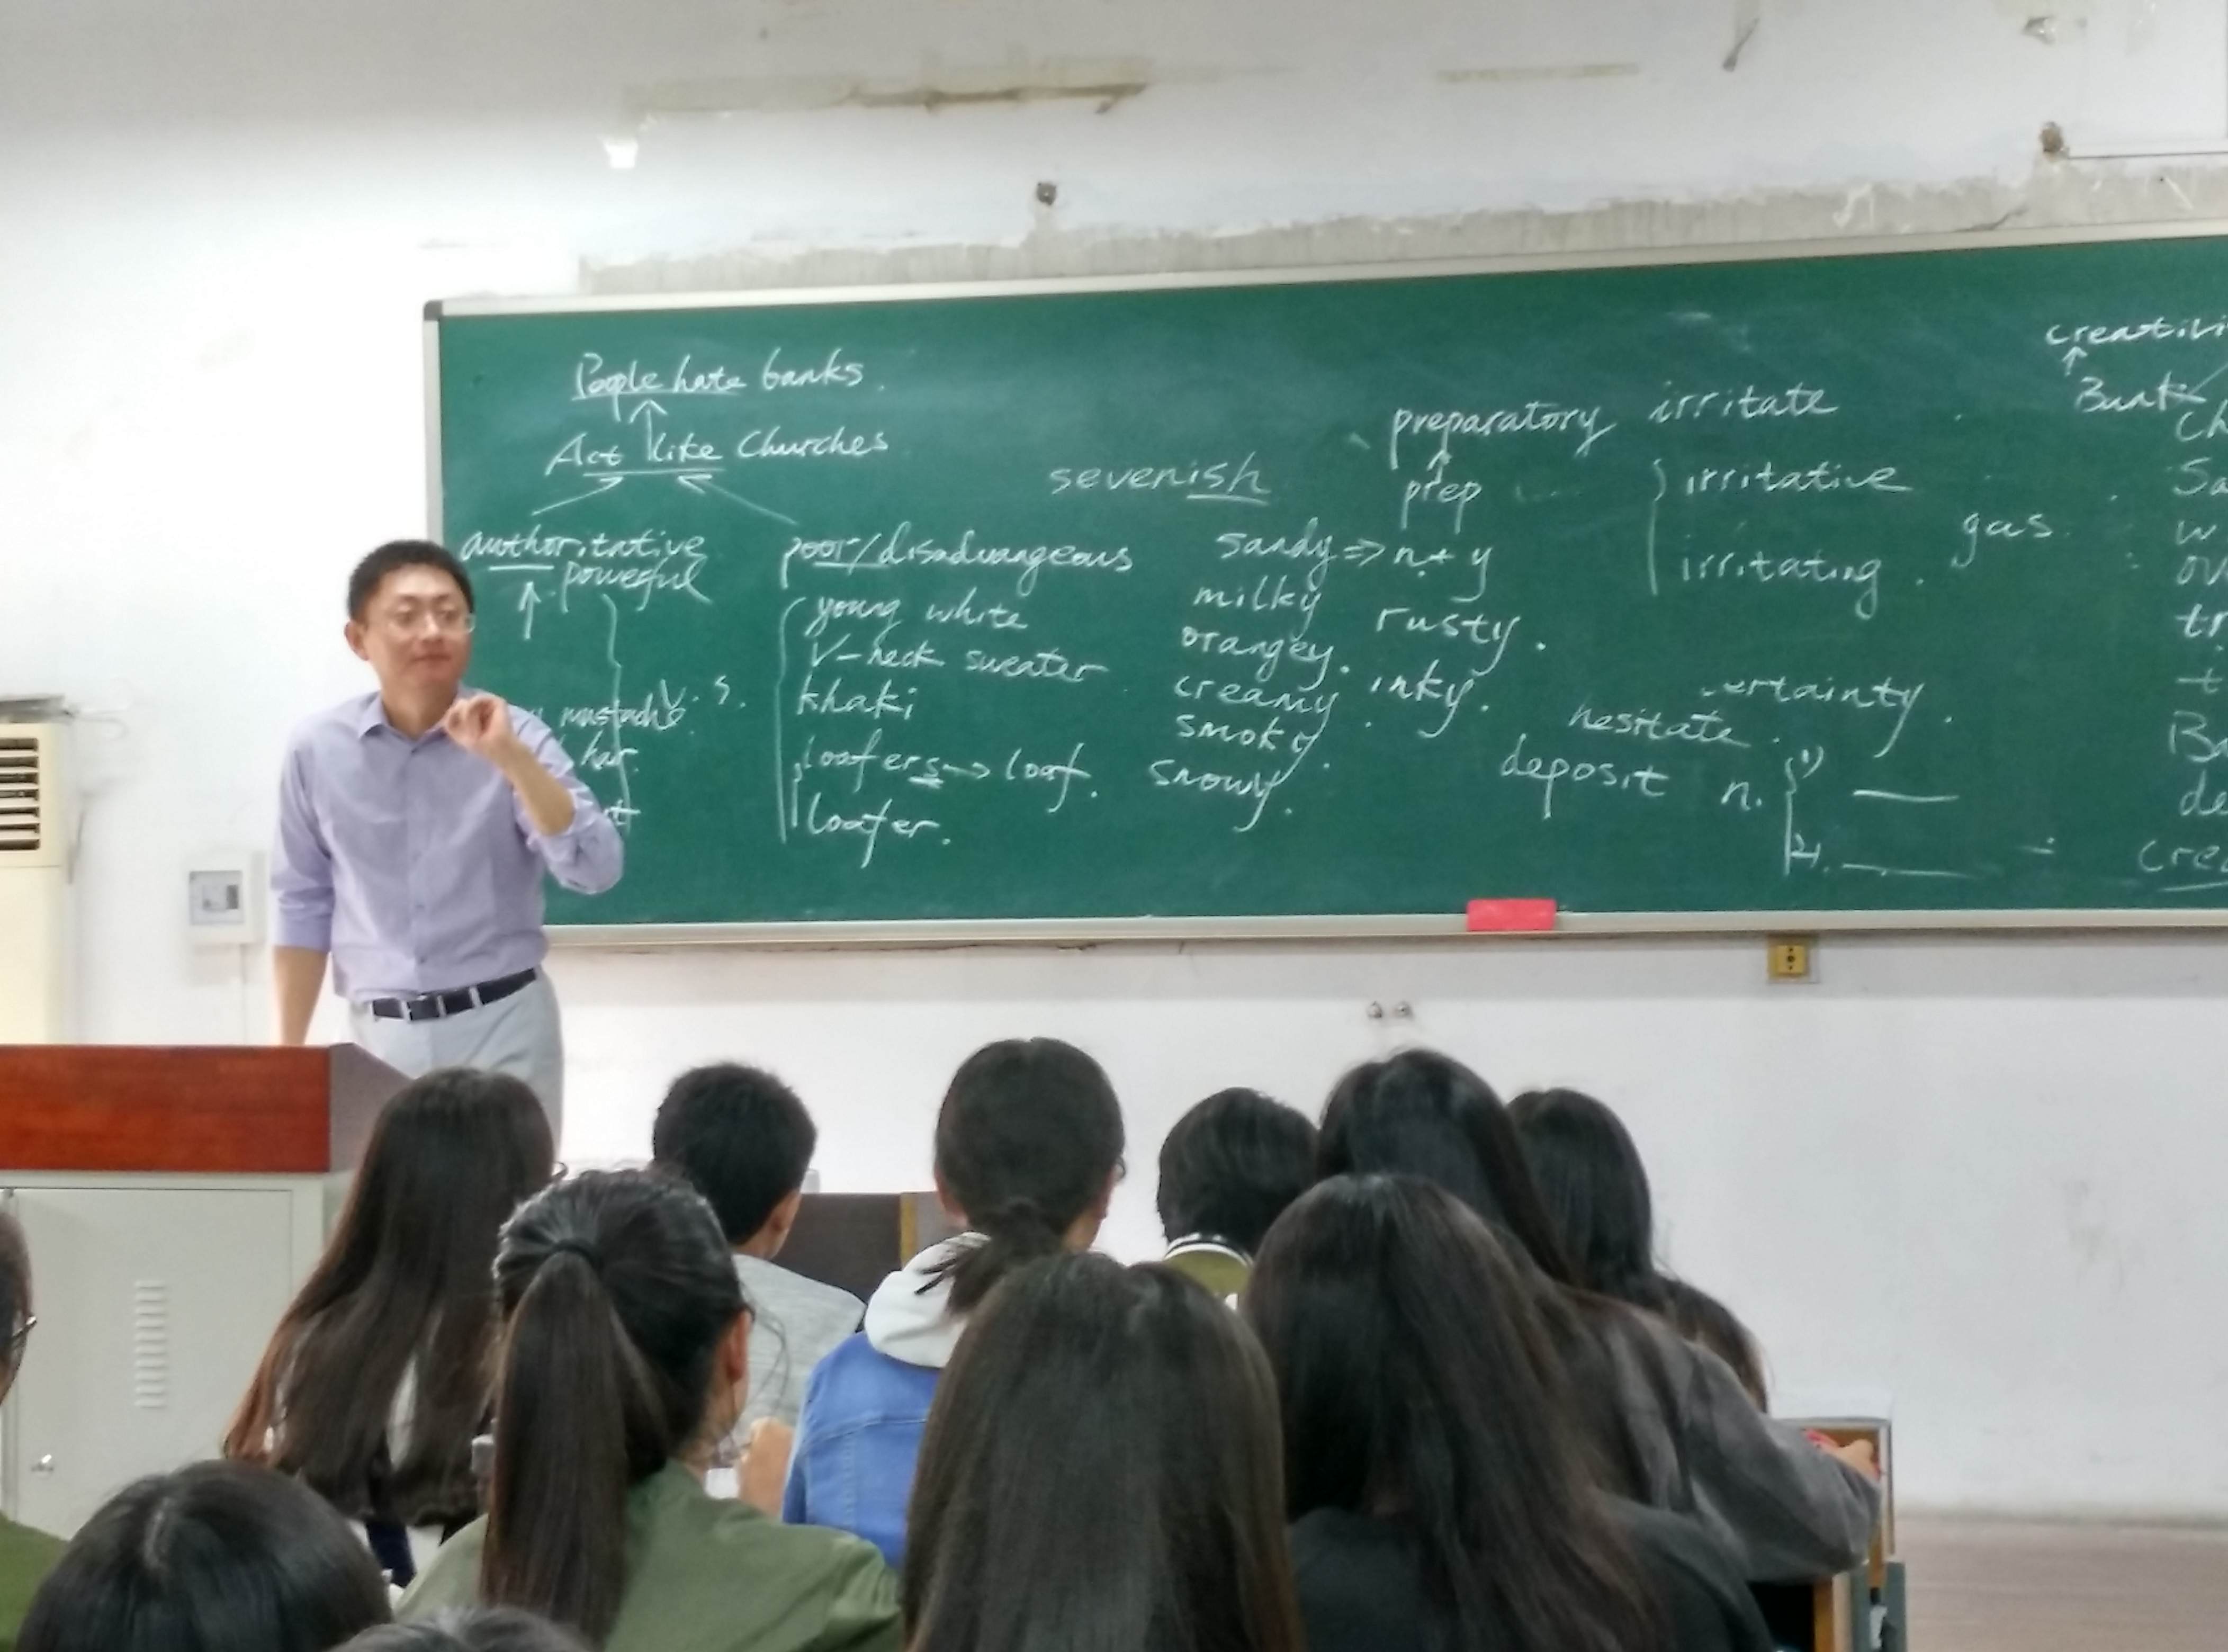 People hate banks.
Act like Churches
authoritative
powerful
mustache
V.S.
poor/disadvangeous
young white
V-neck sweater
khaki
loafers → loaf.
loafer.
sevenish
sandy => n + y
milky
orangey.
creamy.
smoky.
snowy.
rusty.
inky.
preparatory
prep
irritate
irritative
irritating.
gas.
certainty.
hesitate.
deposit n. 1)
2).
Bank